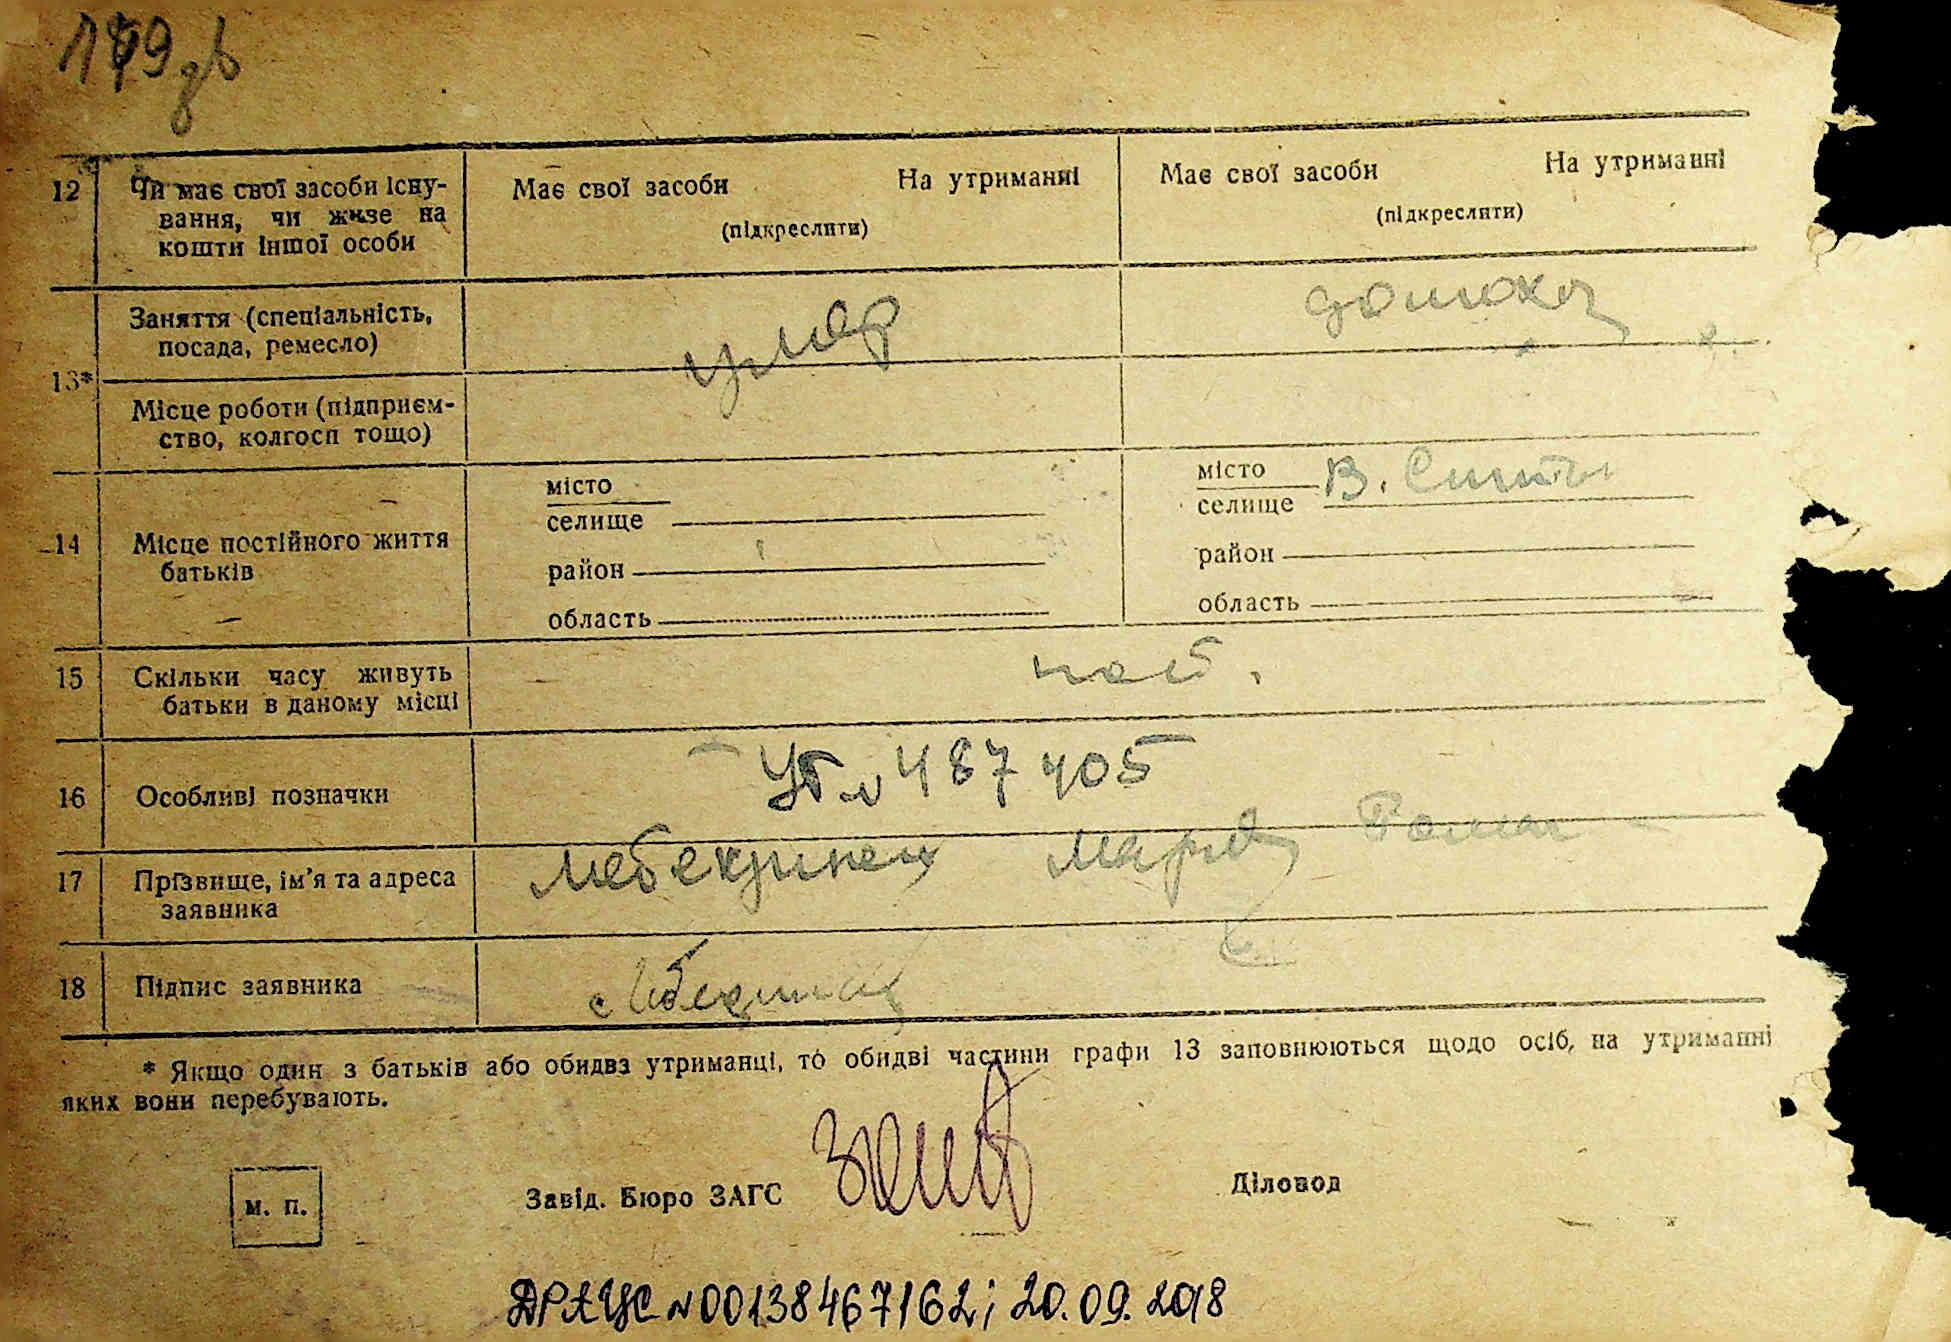 12 Чи має свої засоби існу- Має свої засоби На утриманні Має свої засоби На утриманні
вання, чи живе на (підкреслити) (підкреслити)
кошти іншої особи
Заняття (спеціальність, умер домохоз
посада, ремесло)
13*
Місце роботи (підприєм-
ство, колгосп тощо)
місто місто В.
селище селище
14 Місце постійного життя район район
батьків
область область
15 Скільки часу живуть
батьки в даному місці
16 Особливі позначки 487405
17 Прізвище, ім'я та адреса Мария
заявника
18 Підпис заявника
* Якщо один з батьків або обидва утриманці, то обидві частини графи 13 заповнюються щодо осіб, на утриманні
яких вони перебувають.
м. п. Завід. Бюро ЗАГС Діловод
ДРАЦС №00138467162; 20.09.2018